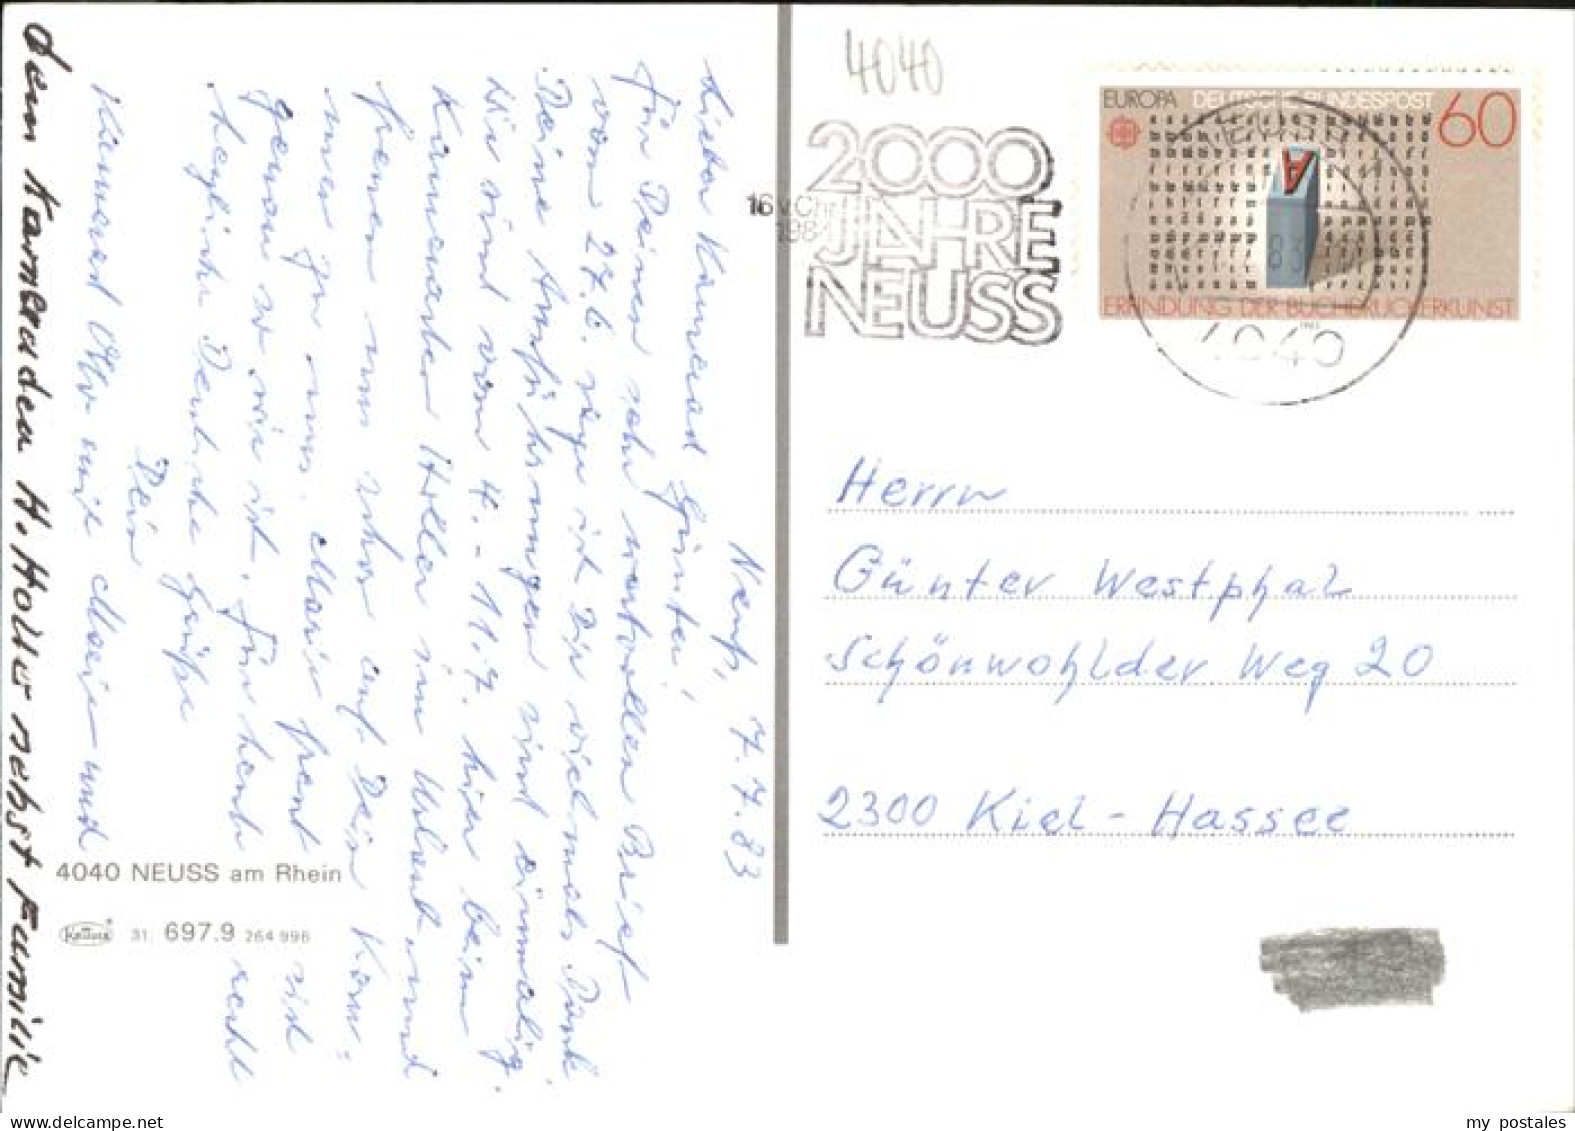 Neuß, 7.7.83
Lieber Kamerad Günter!
Für Deinen sehr wertvollen Brief
vom 27.6. sage ich Dir vielmals Dank
Deine Ausführungen sind einmalig.
Wir sind vom 4. - 11.7. hier beim
Kameraden Holler im Urlaub und
freuen uns schon auf Dein Kom-
men zu uns. Maria freut sich
genau so wie ich. Für heute recht
herzliche Deutsche Grüße
Dein
Kamerad Otto mit Maria und
dem Kameraden H. Holler nebst Familie
4040 NEUSS am Rhein
Krüger 31. 697.9 264 996
4040
16 v.Chr.
1984
2000
JAHRE
NEUSS
EUROPA DEUTSCHE BUNDESPOST 60
A
83
ERFINDUNG DER BUCHDRUCKERKUNST
1983
4040
Herrn
Günter Westphal
Schönwohlder Weg 20
2300 Kiel - Hassee
my postales